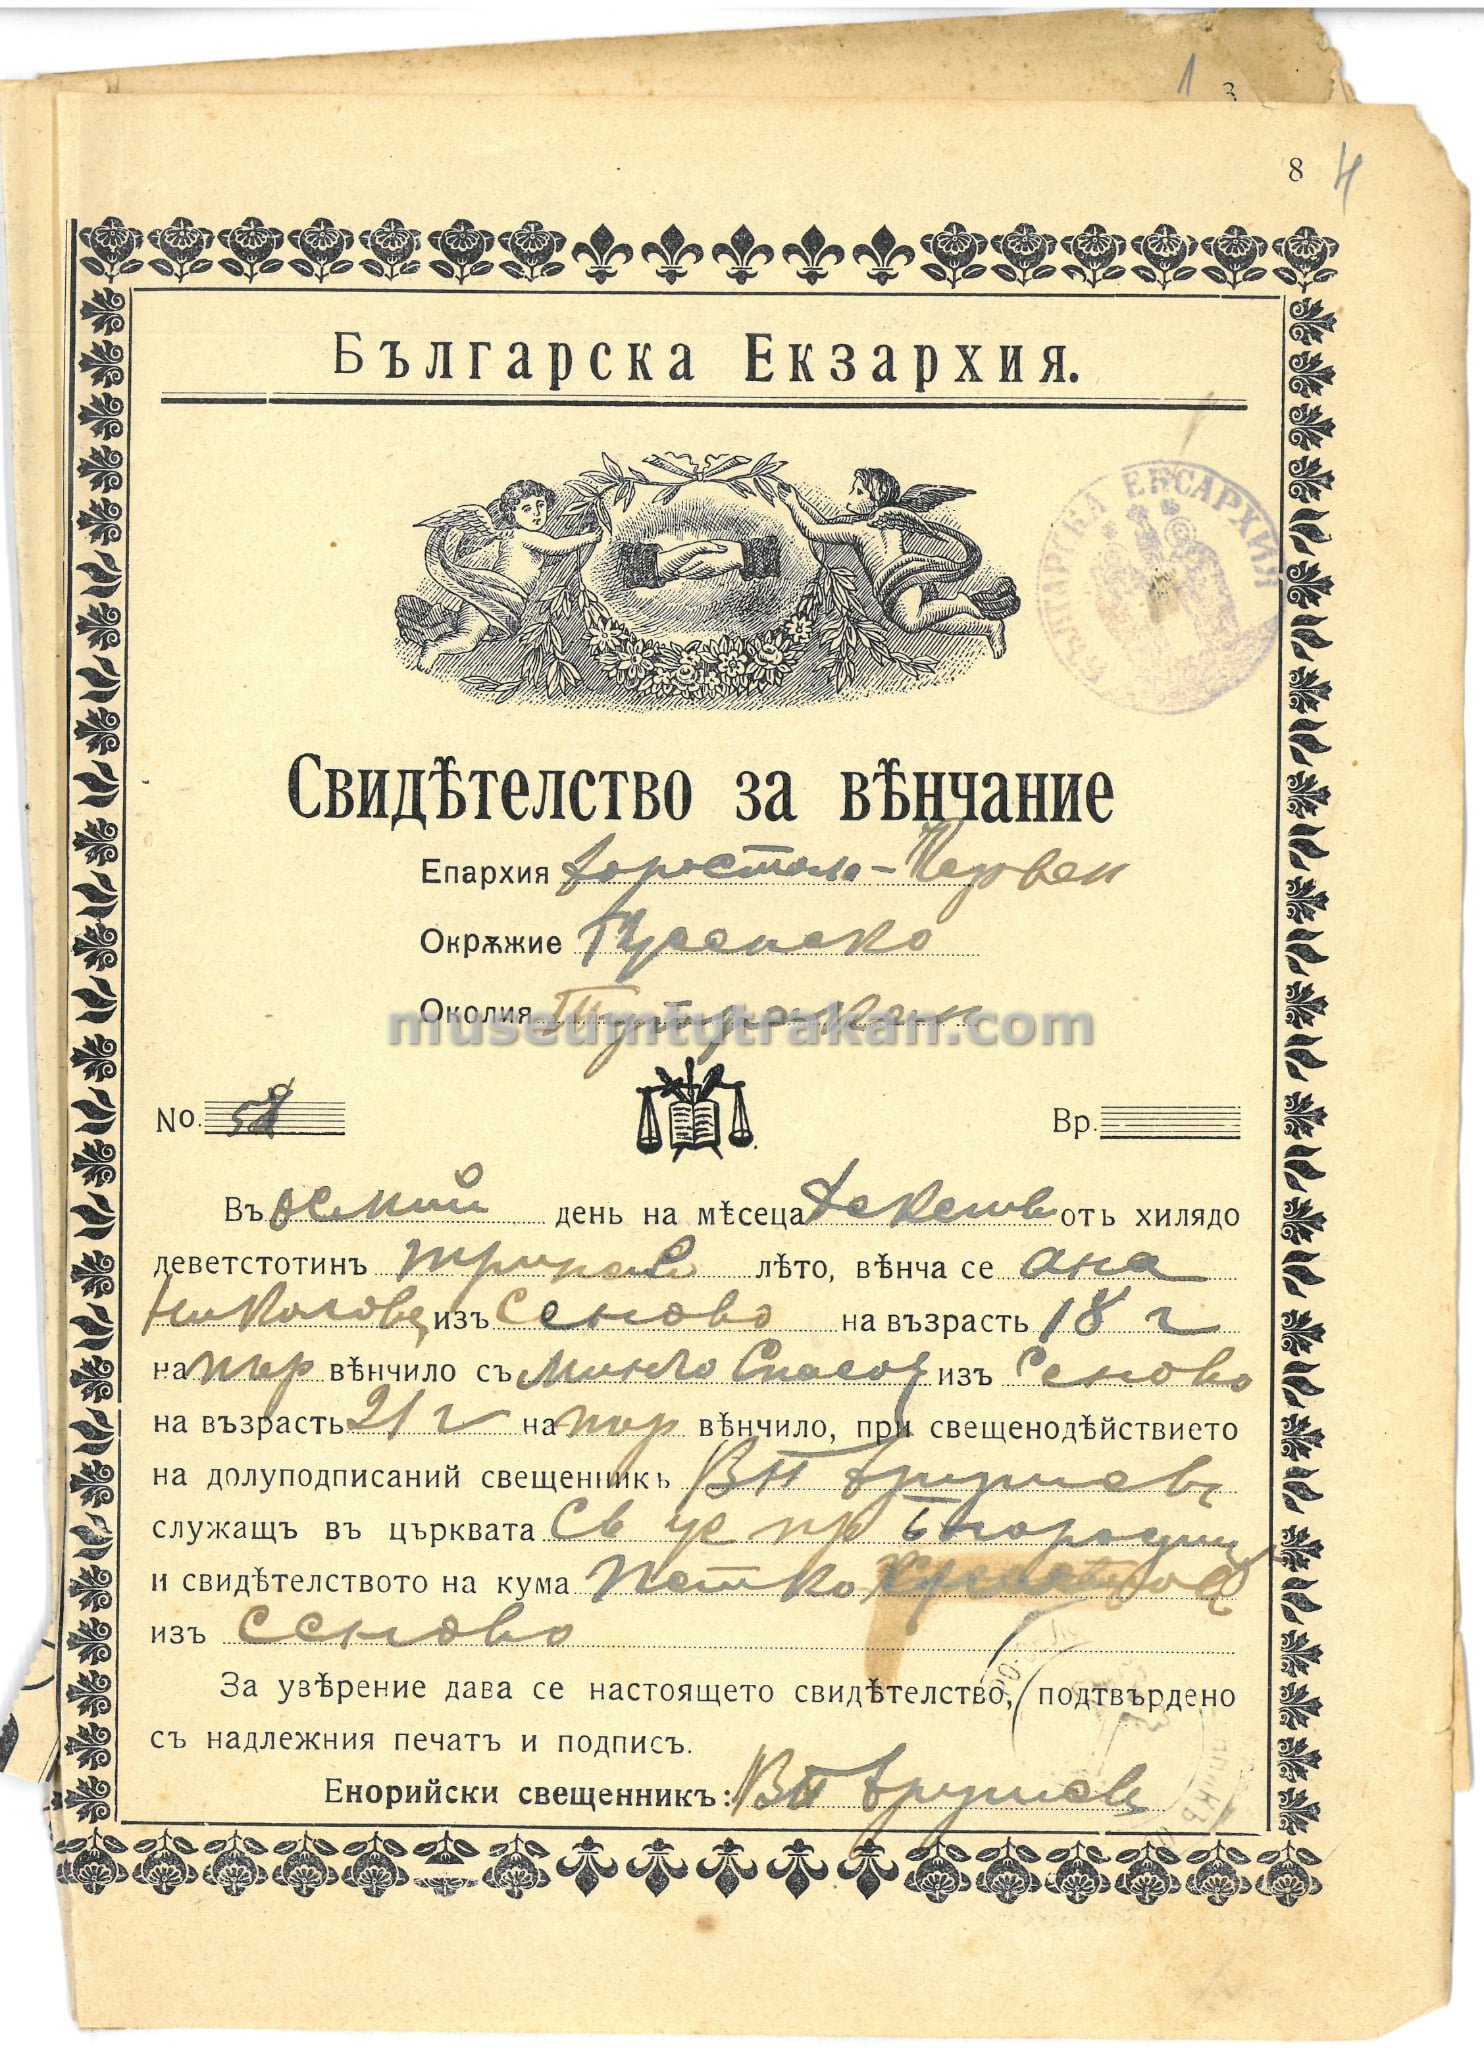 1 3
8 4
Българска Екзархия.
БЪЛГАРСКА ЕКСАРХИЯ
Свидѣтелство за вѣнчание
Епархия Доростоло-Червен
Окрѫжие Русенско
Околия Тутракан
museumtutrakan.com
No. 58 Вр.
Въ осмий день на мѣсеца Декемв отъ хилядо
деветстотинъ лѣто, вѣнча се Ана
Николова изъ Сеново на възрасть 18 г
на пър вѣнчило съ Минчо Спасов изъ Сеново
на възрасть 21 г на пър вѣнчило, при свещенодѣйствието
на долуподписаний свещенникъ ВП
служащъ въ църквата Св Ус пр Богородици
и свидѣтелството на кума Петко
изъ Сеново
За увѣрение дава се настоящето свидѣтелство, подтвърдено
съ надлежния печатъ и подписъ.
Енорийски свещенникъ: ВП